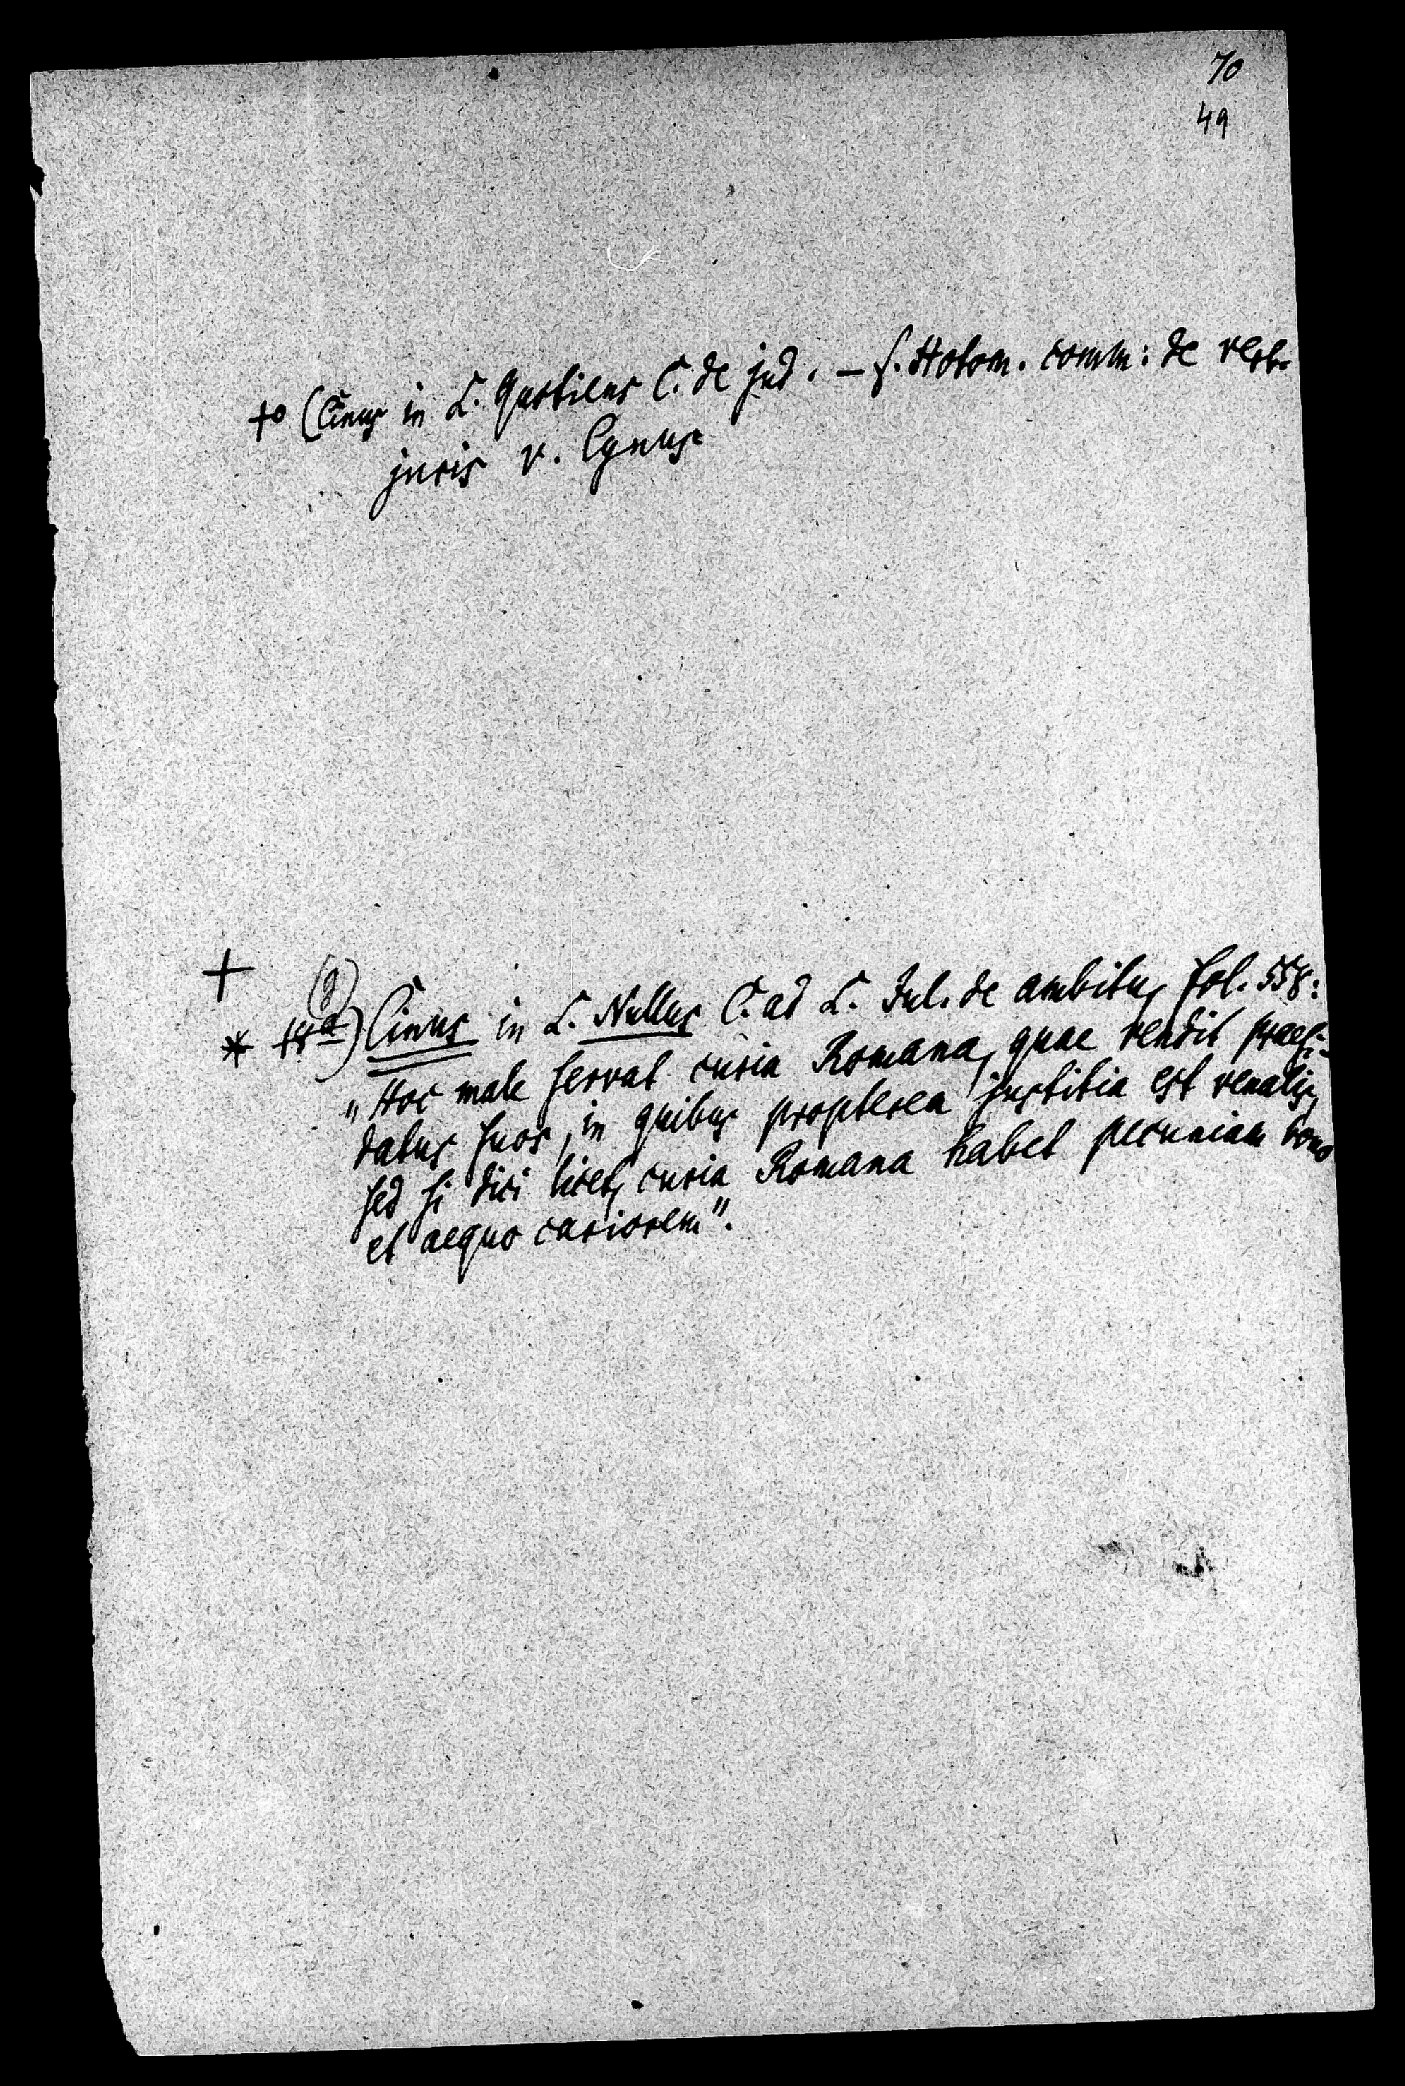 70
49
+o (Cinus in L. Quotiens C. de jud. – f. Hotom. comm: de verb.
juris v. Cynus
+
*
Cinus in L. Nullus C. ad L. Jul. de ambitu, fol. 558:
„Hoc male servat curia Romana, quae vendit praesi-
datus suos, in quibus propterea justitia est venalis,
sed si dici licet, curia Romana habet pecuniam bono
et aequo cariorem".